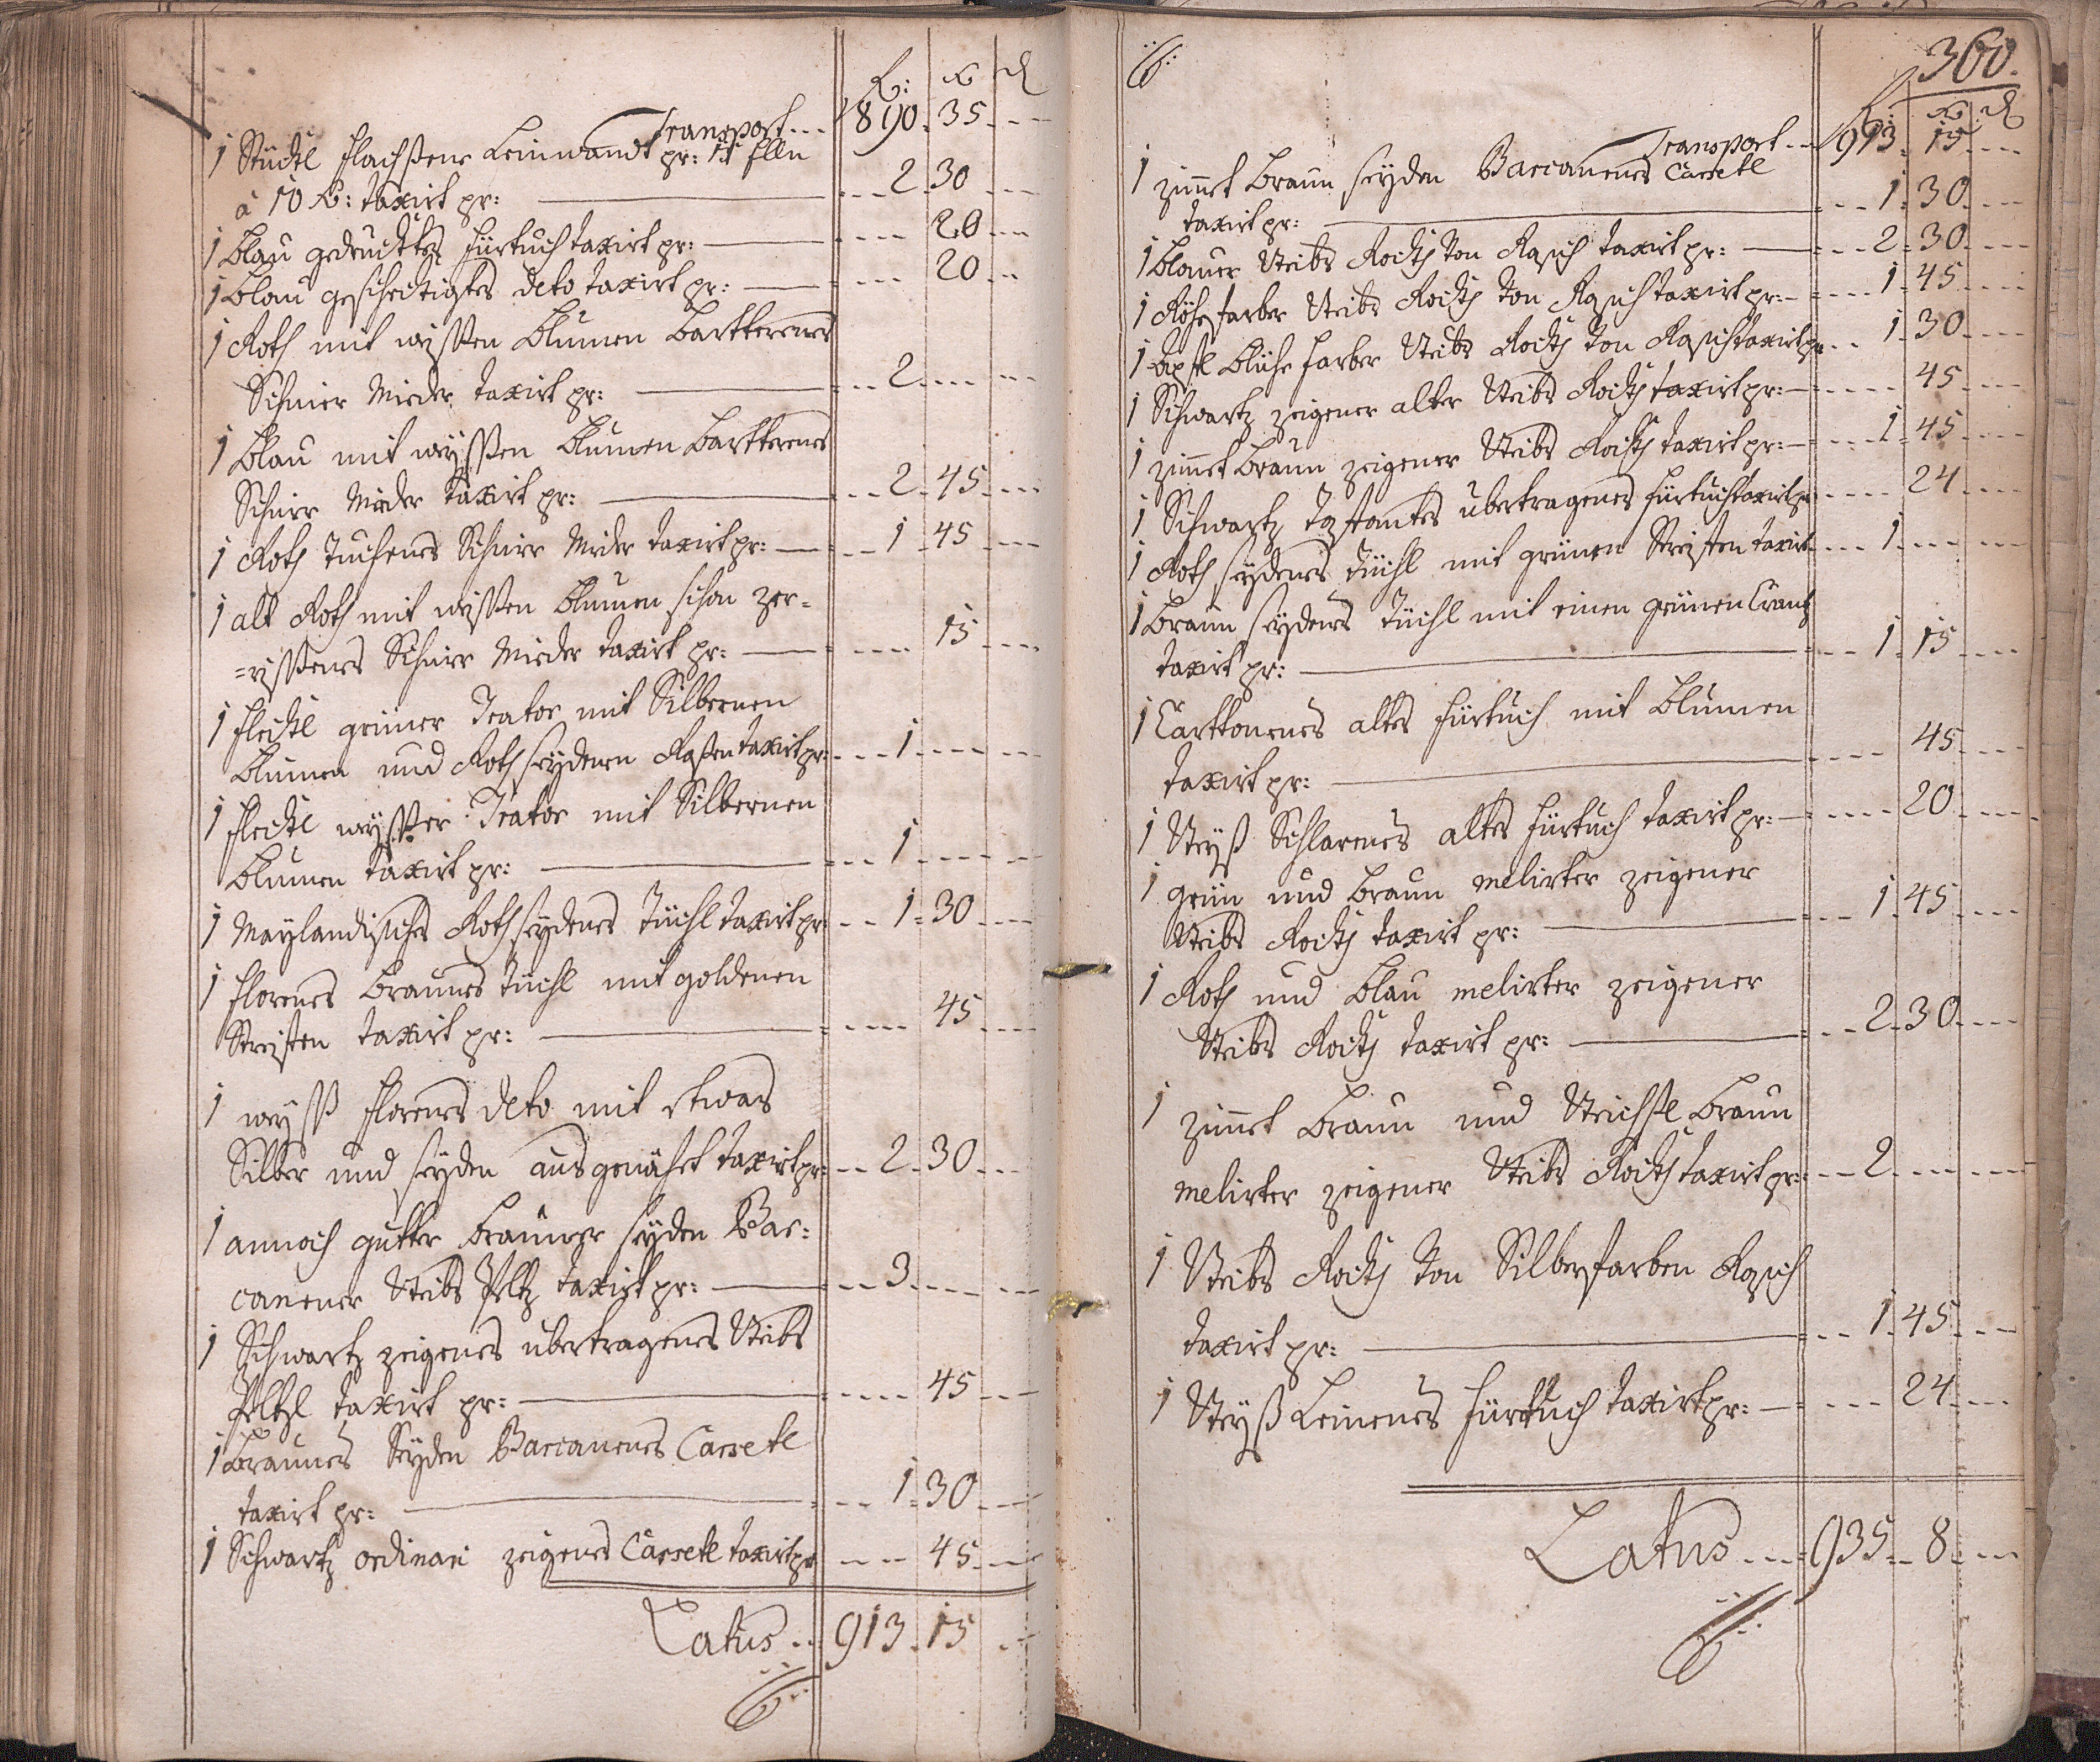 fl: xr d
Transport --- 890. 35. ---
1 Stückl Flachßene Leinwandt pr: 15 Elln
à 10 xr: taxirt pr: --- 2. 30 ---
1 blau gedrucktes Fürtuch taxirt pr: --- 20 ---
1 blau deto taxirt pr: --- 20 ---
1 Roth mit wyssen Blumen
Schnier Mieder taxirt pr: --- 2. ---
1 blau mit wyssen Blumen
Schnier Mieder taxirt pr: --- 2. 45. ---
1 Roth Tuchenes Schnier Mieder taxirt pr: --- 1. 45 ---
1 alt Roth mit wissen Blumen schon zer=
=rissenes Schnier Mieder taxirt pr: --- 15 ---
1 Fleckl grüner Trator mit Silbernen
Blumen und Roth seydenen Rosen taxirt pr: --- 1. ---
1 Fleckl wysser Trator mit Silbernen
Blumen taxirt pr: --- 1 ---
1 Maylandisches Roth seydenes Tüchl taxirt pr: --- 1. 30. ---
1 Florenes braunes Tüchl mit goldenen
Streiffen taxirt pr: --- 45 ---
1 wyss Florenes deto mit etwas
Silber und seyden ausgenähet taxirt pr: --- 2. 30. ---
1 annoch gutter brauner seyden Bar=
canener Weibs Peltz taxirt pr: --- 3. ---
1 Schwartz zeigenes übertragenes Weibs
Peltzl taxirt pr: --- 45 ---
1 Braunes Seyden Barcanenes Carsetl
taxirt pr: --- 1. 30. ---
1 Schwartz ordinari zeigenes Carsetl taxirt pr --- 45. ---
Latus --- 913. 15 ---
360.
fl: xr d
Transport --- 913. 15 ---
1 zimet braun seyden Barcanenes Carsetl
taxirt pr: --- 1. 30. ---
1 blauer Weibs Rockh von Rasch taxirt pr: --- 2. 30. ---
1 farber Weibs Rockh von Rasch taxirt pr: --- 1. 45 ---
1 Apfl Blühe farber Weibs Rockh von Rasch taxirt pr --- 1. 30. ---
1 Schwartz zeigener alter Weibs Rockh taxirt pr: --- 45 ---
1 zimet braun zeigener Weibs Rockh taxirt pr: --- 1. 45 ---
1 Schwartz Taffantes übertragenes Fürtuch taxirt pr --- 24 ---
1 Roth seydenes Tüchl mit grünen Streiffen taxirt --- 1. ---
1 Braun seydenes Tüchl mit einen grünen Crantz
taxirt pr: --- 1. 15 ---
1 Carttonenes altes Fürtuch mit Blumen
taxirt pr: --- 45 ---
1 Weyß Schlarenes altes Fürtuch taxirt pr: --- 20 ---
1 grün und braun melirter zeigener
Weibs Rockh taxirt pr: --- 1. 45 ---
1 Roth und blau melirter zeigener
Weibs Rockh taxirt pr: --- 2. 30. ---
1 zimet braun und Weichsl braun
melirter zeigener Weibs Rockh taxirt pr: --- 2 ---
1 Weibs Rockh von Silberfarben Rasch
taxirt pr: --- 1. 45 ---
1 Weyß Leinenes Fürtuch taxirt pr: --- 24 ---
Latus --- 935. 8 ---